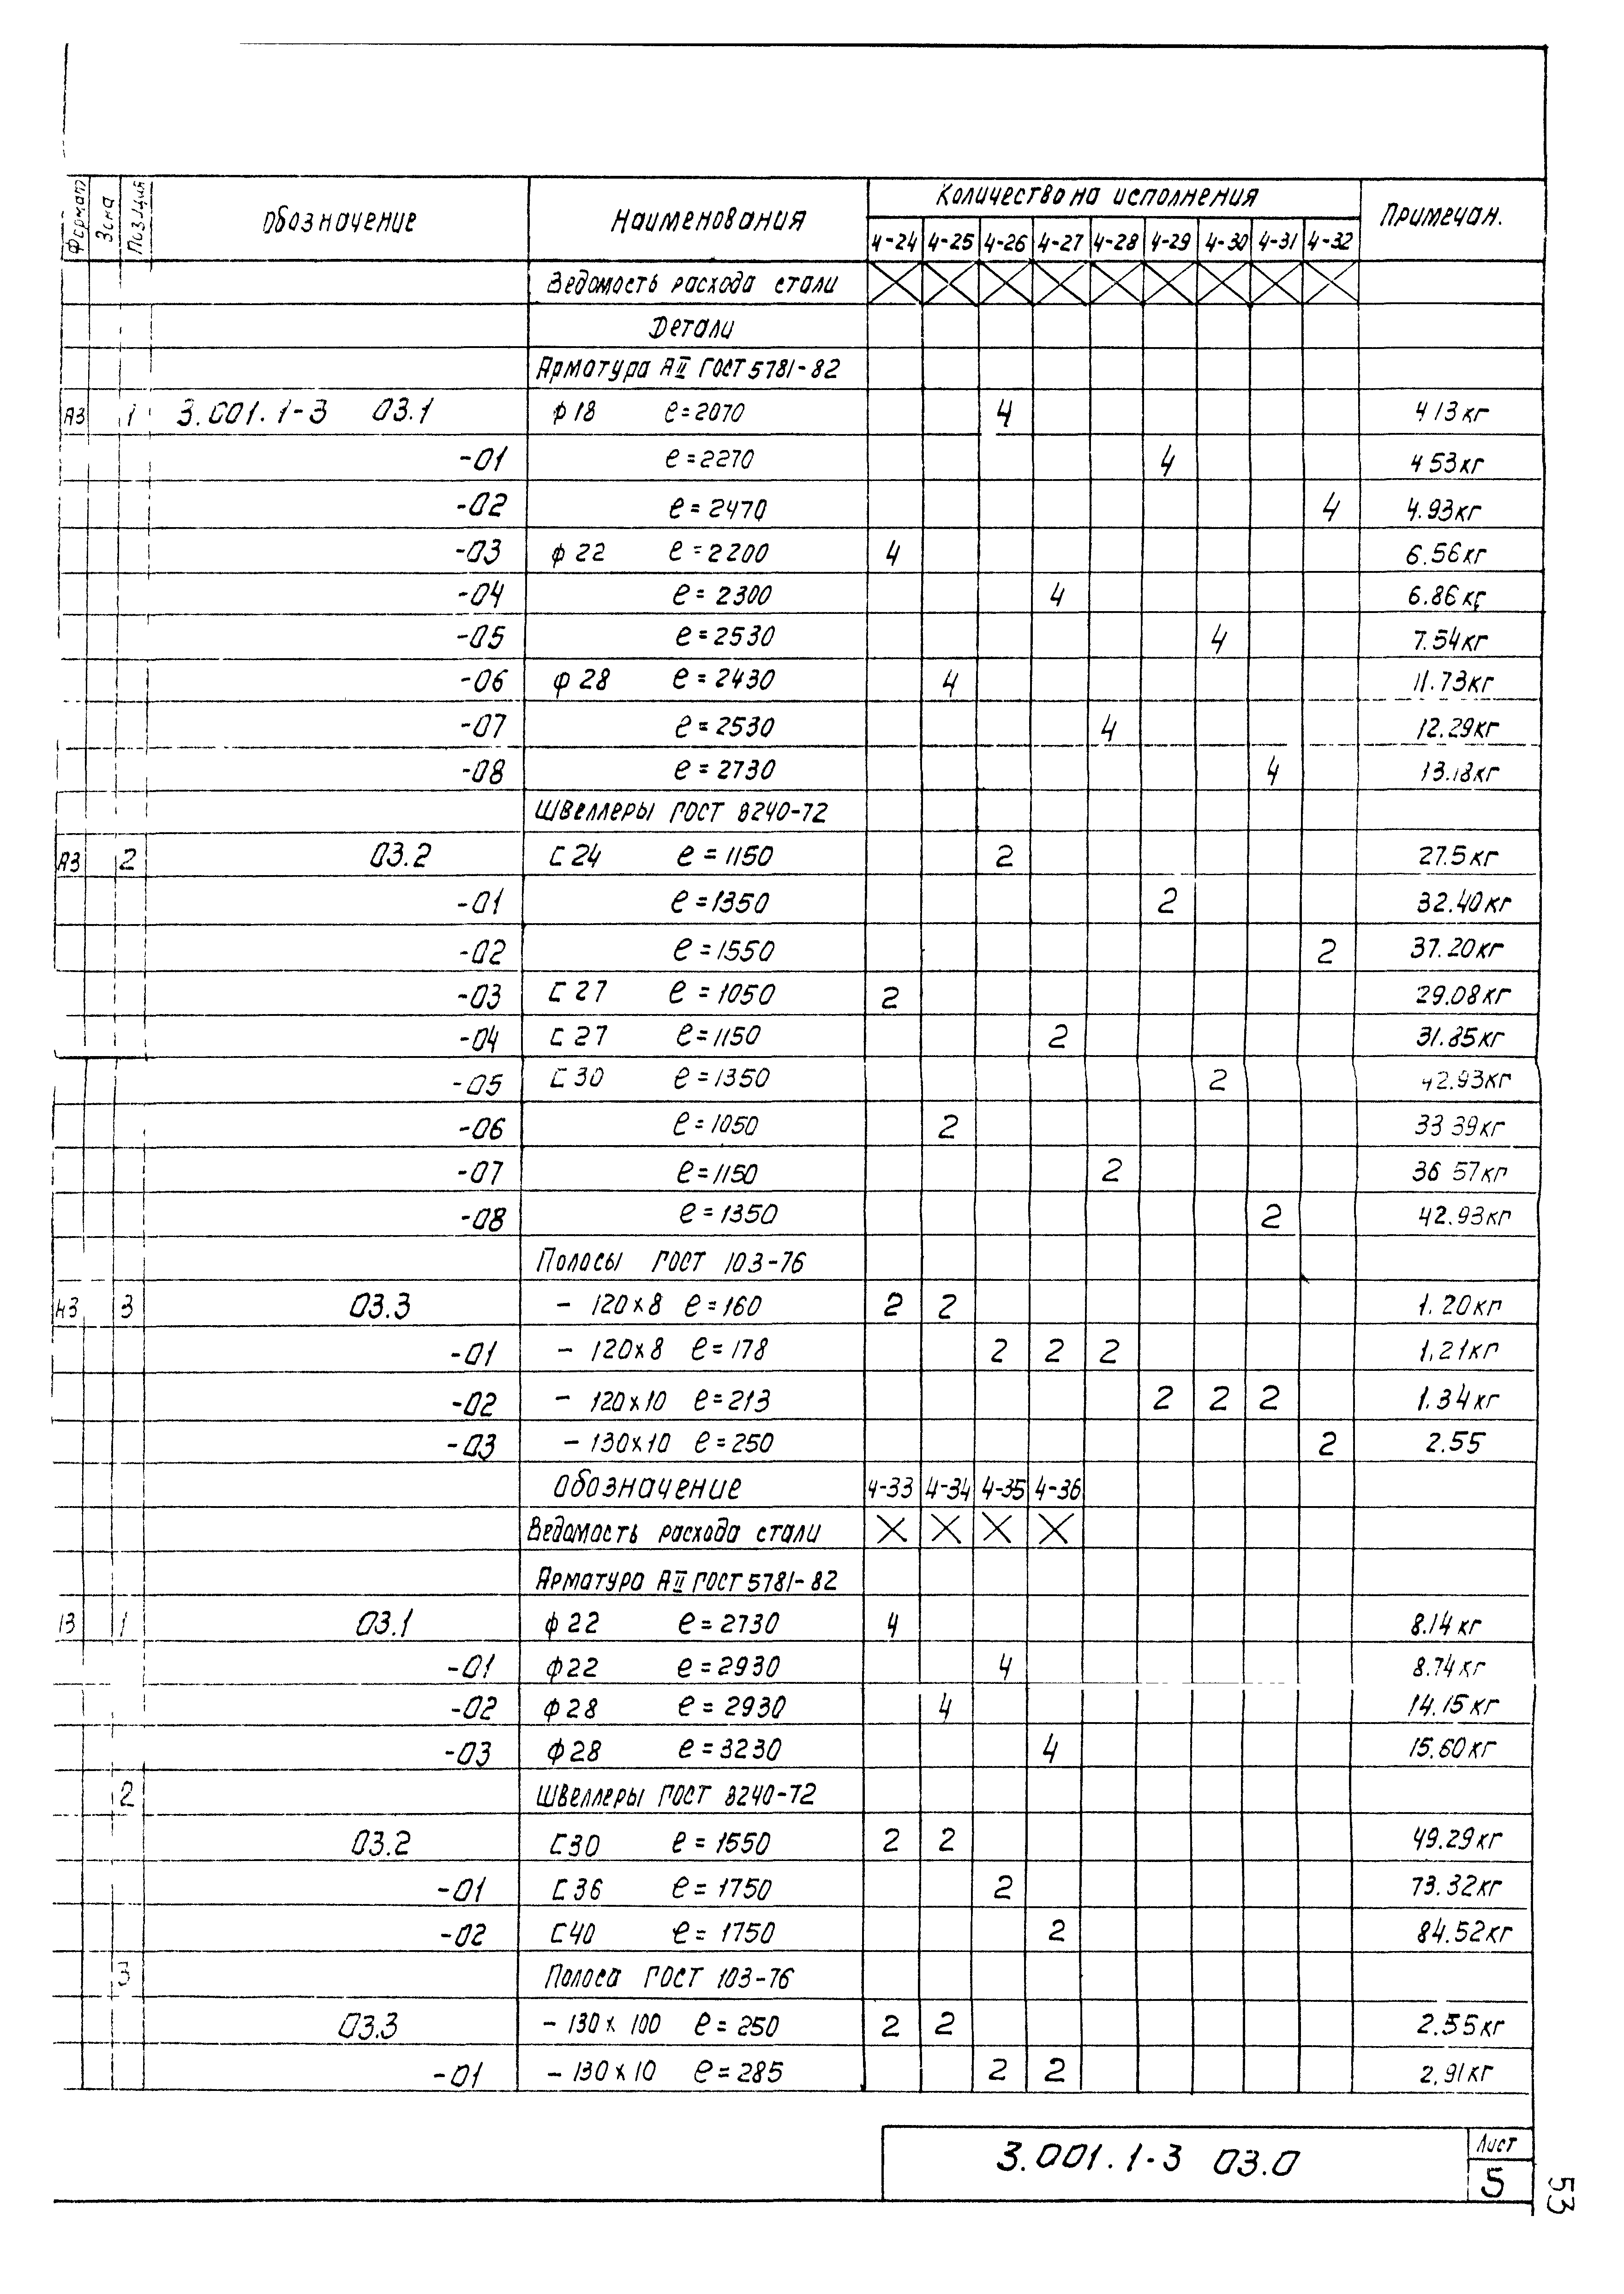 Формат Зона Позиция Обозначение Наименования Количество на исполнения Примечан.
4-24 4-25 4-26 4-27 4-28 4-29 4-30 4-31 4-32
Ведомость расхода стали
Детали
Арматура АII ГОСТ 5781-82
А3 1 3.001.1-3 03.1 ф18 ℓ=2070 4 4 13кг
-01 ℓ=2270 4 4 53кг
-02 ℓ=2470 4 4.93кг
-03 ф22 ℓ=2200 4 6.56кг
-04 ℓ=2300 4 6.86кг
-05 ℓ=2530 4 7.54кг
-06 ф28 ℓ=2430 4 11.73кг
-07 ℓ=2530 4 12.29кг
-08 ℓ=2730 4 13.18кг
Швеллеры ГОСТ 8240-72
А3 2 03.2 С24 ℓ=1150 2 27.5кг
-01 ℓ=1350 2 32.40кг
-02 ℓ=1550 2 37.20кг
-03 С27 ℓ=1050 2 29.08кг
-04 С27 ℓ=1150 2 31.85кг
-05 С30 ℓ=1350 2 42.93кг
-06 ℓ=1050 2 33 39кг
-07 ℓ=1150 2 36 57кг
-08 ℓ=1350 2 42.93кг
Полосы ГОСТ 103-76
А3 3 03.3 - 120х8 ℓ=160 2 2 1.20кг
-01 - 120х8 ℓ=178 2 2 2 1,21кг
-02 - 120х10 ℓ=213 2 2 2 1.34кг
-03 - 130х10 ℓ=250 2 2.55
Обозначение 4-33 4-34 4-35 4-36
Ведомость расхода стали
Арматура АII ГОСТ 5781-82
А3 1 03.1 ф22 ℓ=2730 4 8.14кг
-01 ф22 ℓ=2930 4 8.74кг
-02 ф28 ℓ=2930 4 14.15кг
-03 ф28 ℓ=3230 4 15.60кг
2 Швеллеры ГОСТ 8240-72
03.2 С30 ℓ=1550 2 2 49.29кг
-01 С36 ℓ=1750 2 73.32кг
-02 С40 ℓ=1750 2 84.52кг
3 Полоса ГОСТ 103-76
03.3 - 130х100 ℓ=250 2 2 2.55кг
-01 - 130х10 ℓ=285 2 2 2,91кг
3.001.1-3 03.0
Лист
5
53